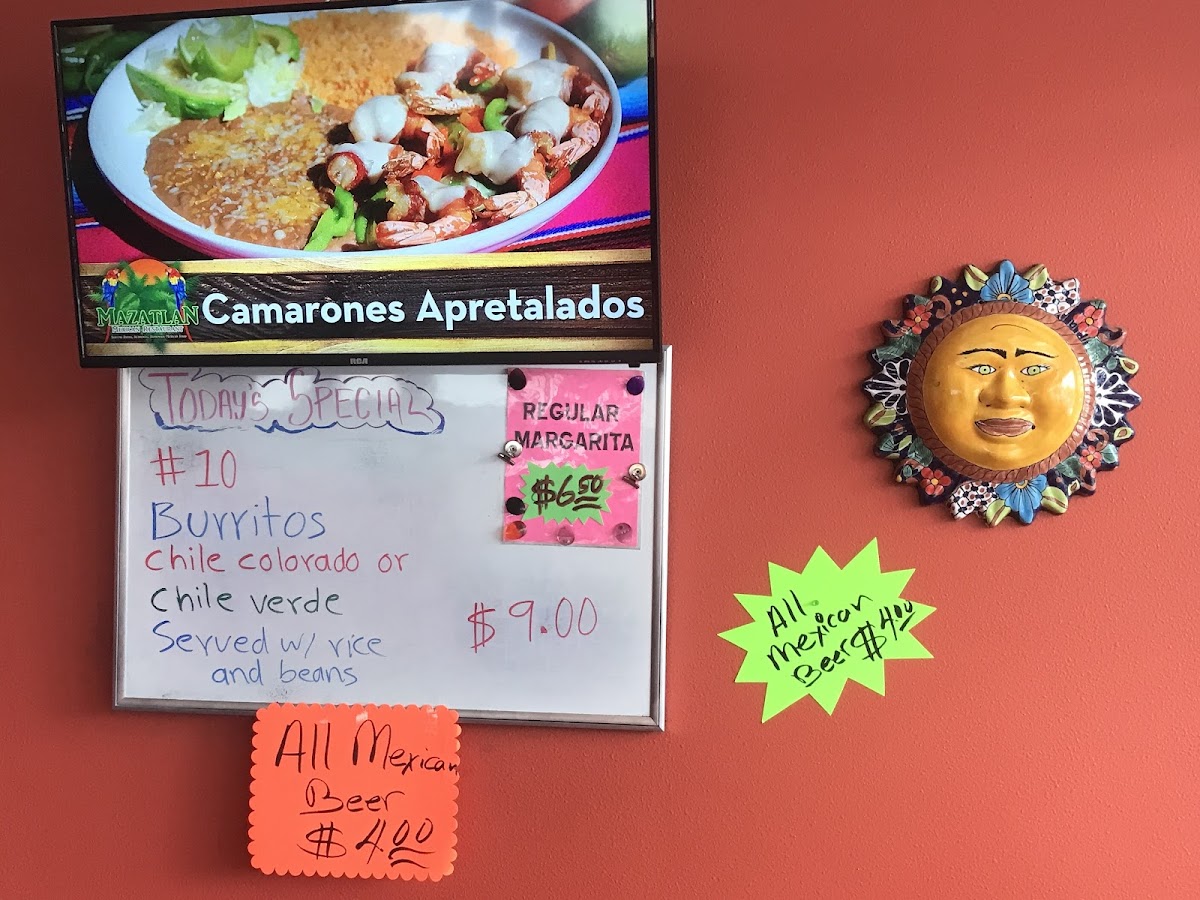 MAZATLAN
MEXICAN RESTAURANT
Camarones Apretalados
RCA
TODAY'S SPECIAL
#10
Burritos
chile colorado or
chile verde
Served w/ rice
and beans
$9.00
REGULAR
MARGARITA
$6.50
All
Mexican
Beer $4.00
All Mexican
Beer
$4.00